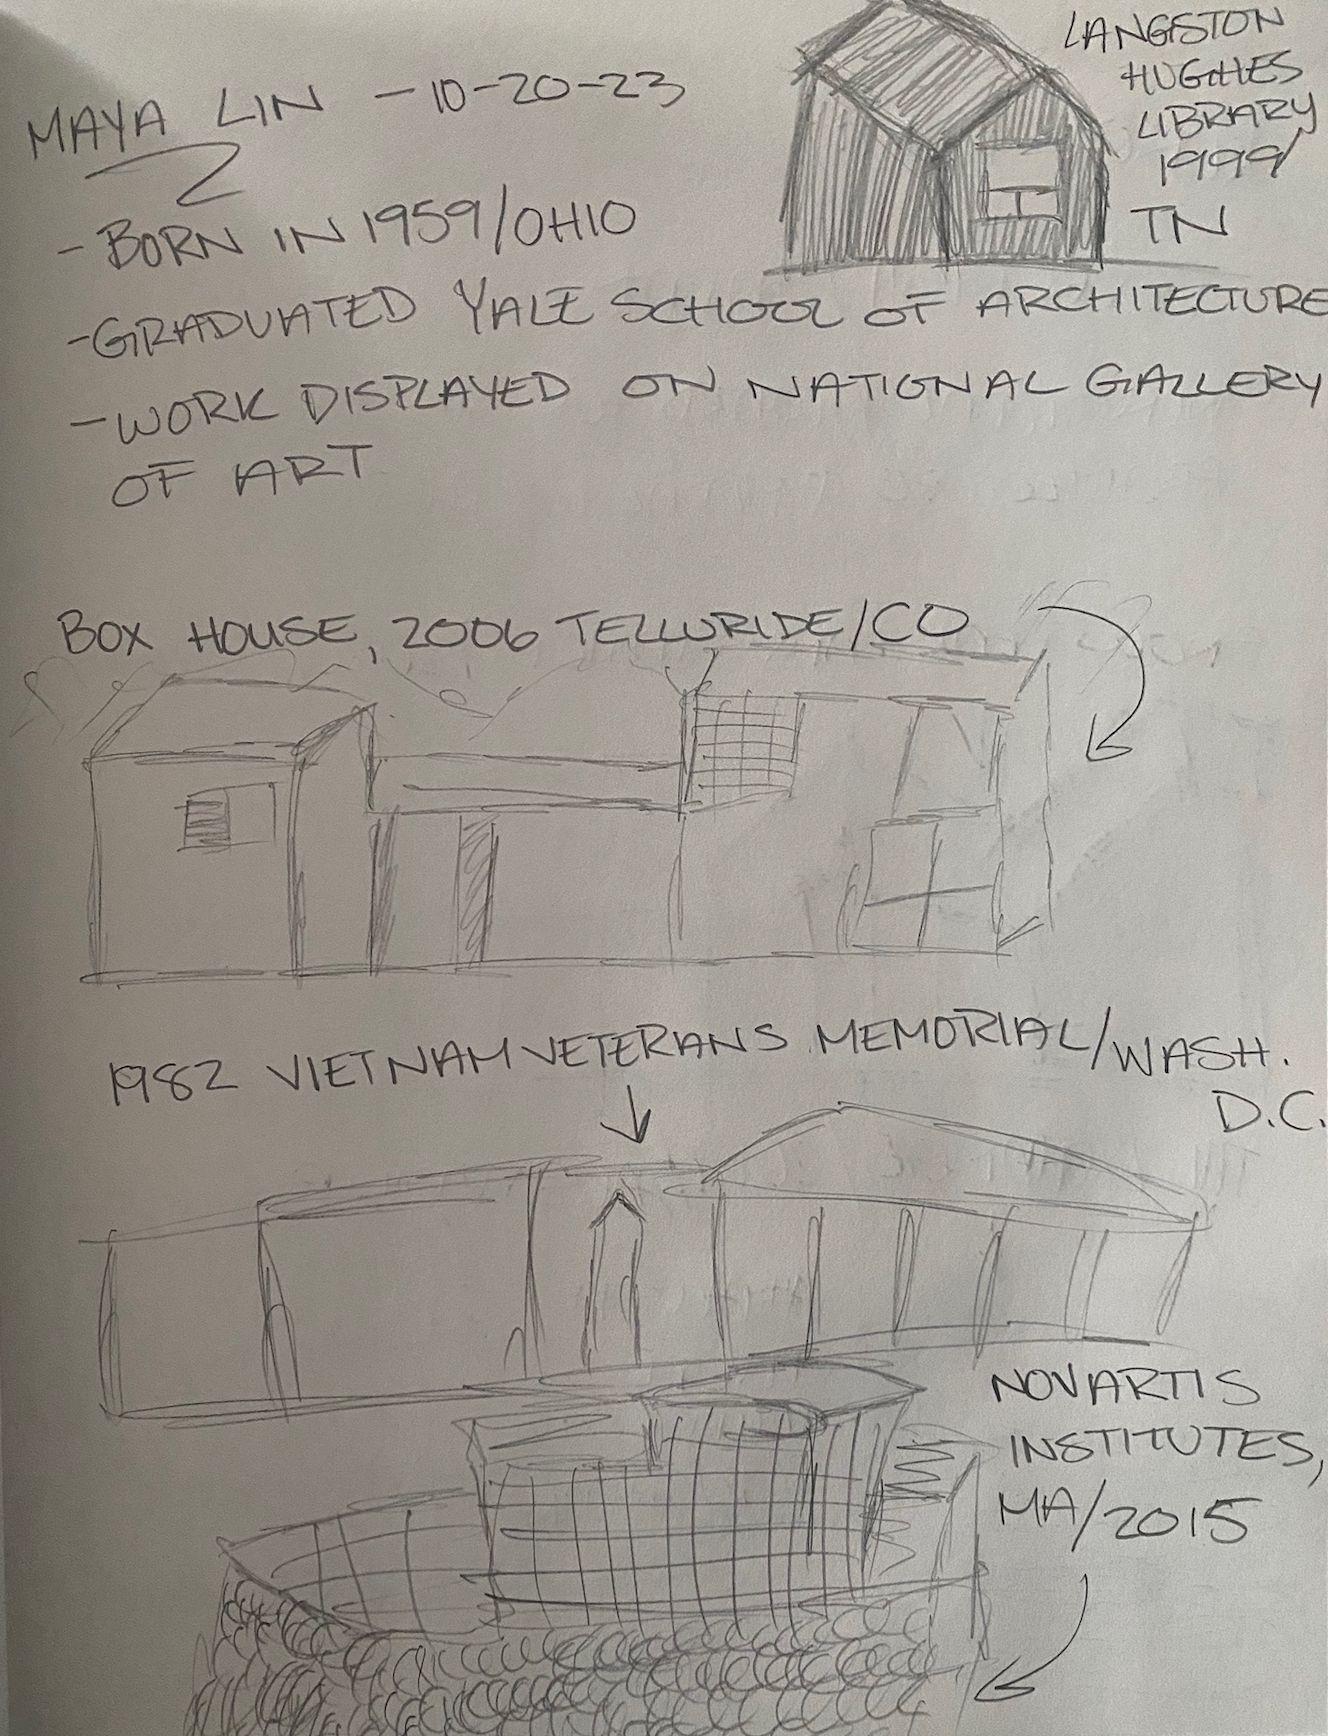 MAYA LIN - 10-20-23
LANGSTON
HUGHES
LIBRARY
1999/
TN
- BORN IN 1959/OHIO
- GRADUATED YALE SCHOOL OF ARCHITECTURE
- WORK DISPLAYED ON NATIONAL GALLERY
OF ART
BOX HOUSE, 2006 TELLURIDE/CO
1982 VIETNAM VETERANS MEMORIAL/WASH.
D.C.
NOVARTIS
INSTITUTES,
MA/2015